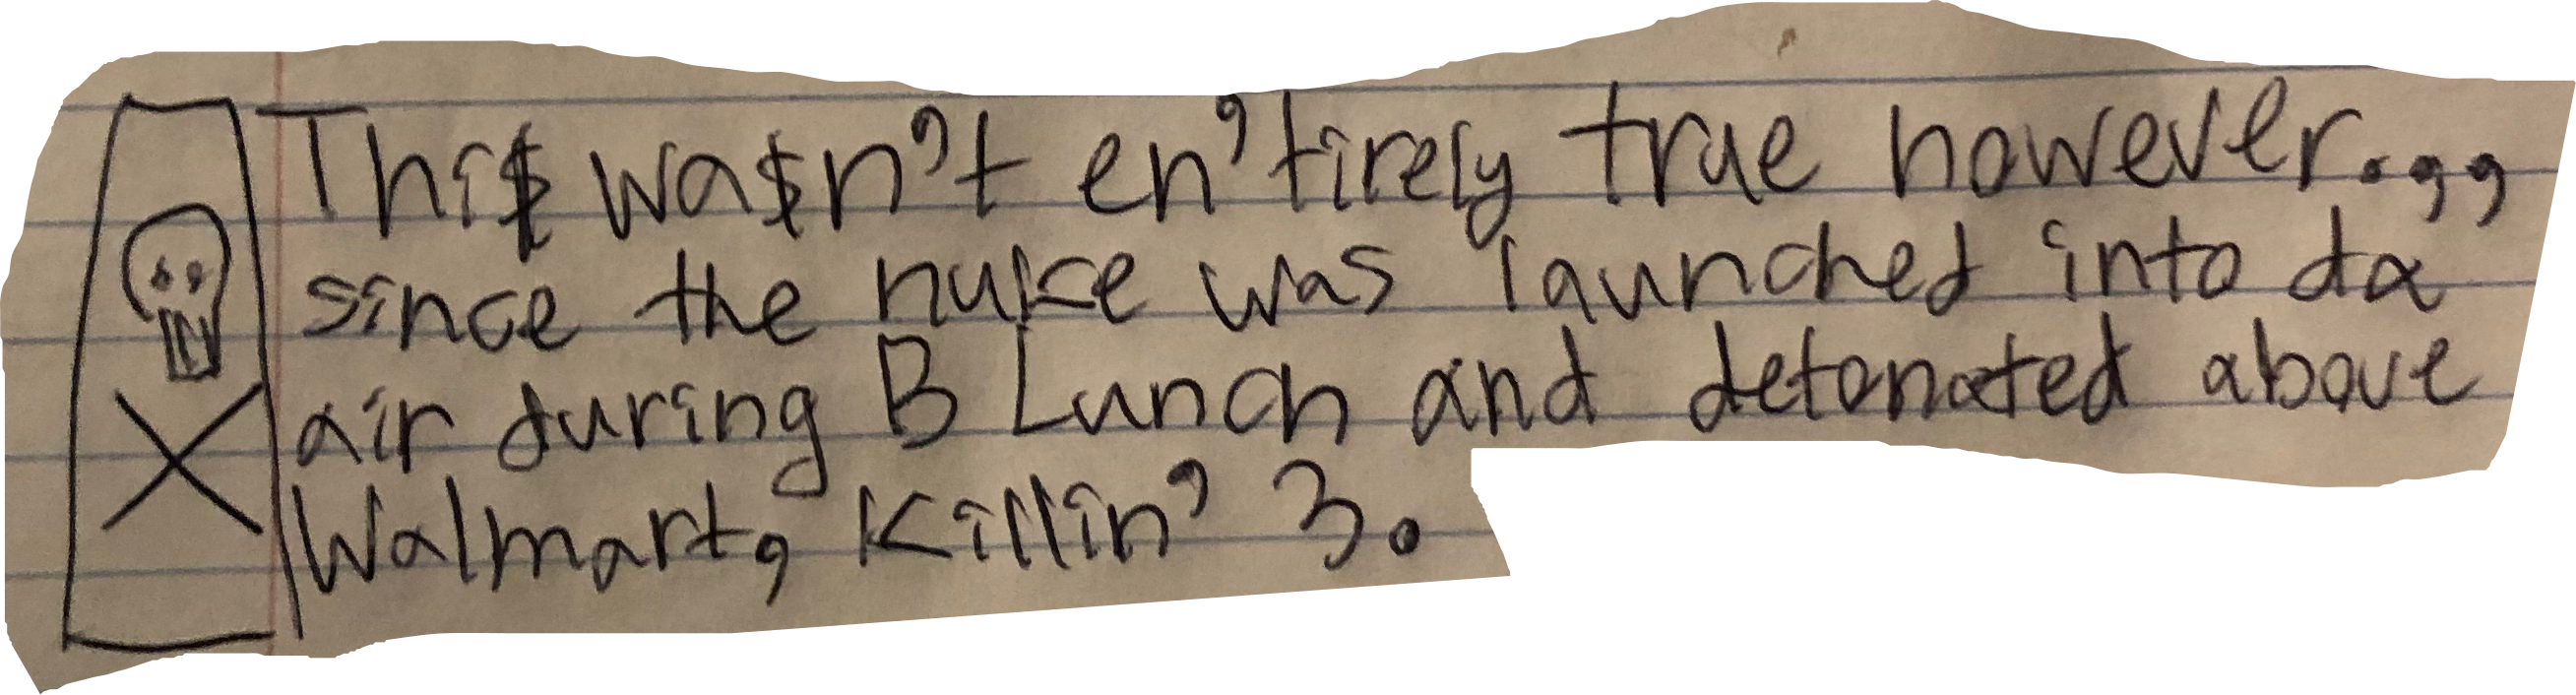 Thi$ wa$n't en'tirely true however.,,
since the nuke was launched into da
air during B Lunch and detonated above
Walmart, Killin' 3.